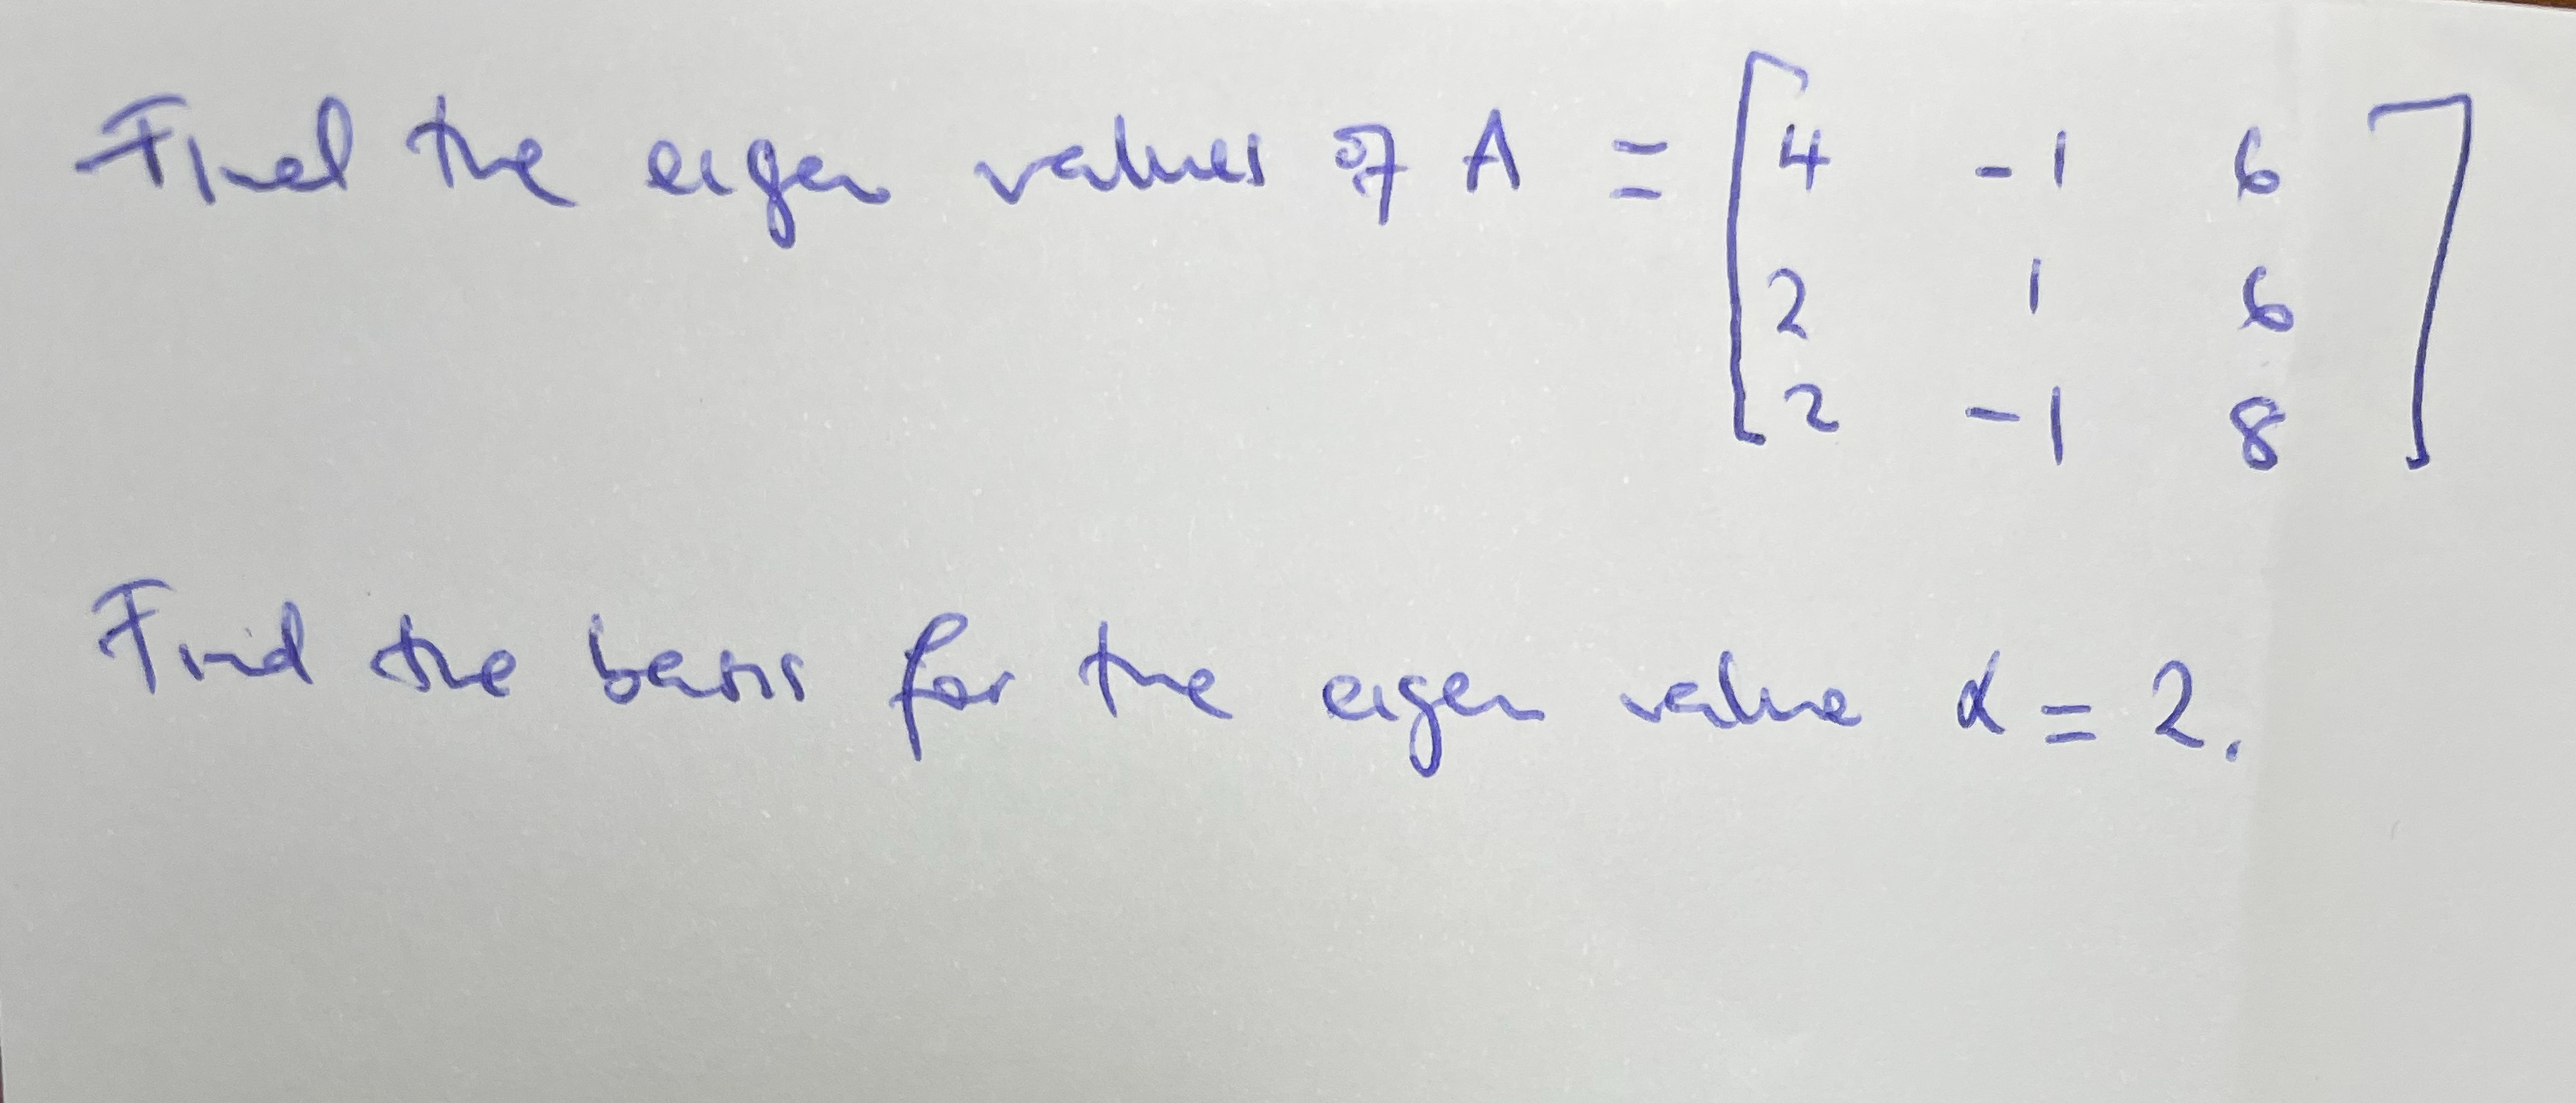 Find the eigen values of A = [4 -1 6
2 1 6
2 -1 8]
Find the basis for the eigen value α = 2.